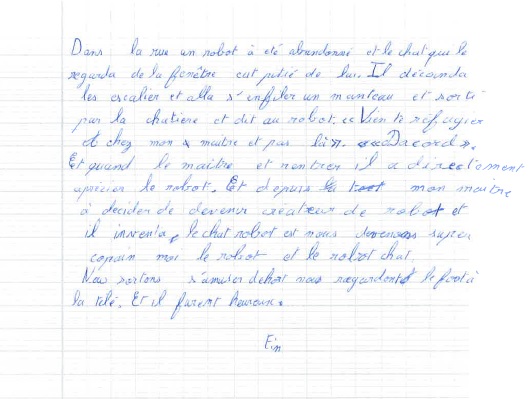 Dans la rue un robot à été abandonné et le chat qui le
regarda de la fenêtre eut pitié de lui. Il décenda
les escalier et alla s'enfiler un manteau et sorti
par la chatière et dit au robot. « Vien te réfugier
chez mon maitre et pas là ». « Dacord ».
Et quand le maitre et rentrer il a directement
aprécier le robot. Et depuis mon maitre
à décider de devenir créateur de robot et
il inventa, le chat robot est nous devenons super
copain moi le robot et le robot chat.
Nous sortons s'amuser dehort nous regardont le foot à
la télé. Et il furent heureux.
Fin